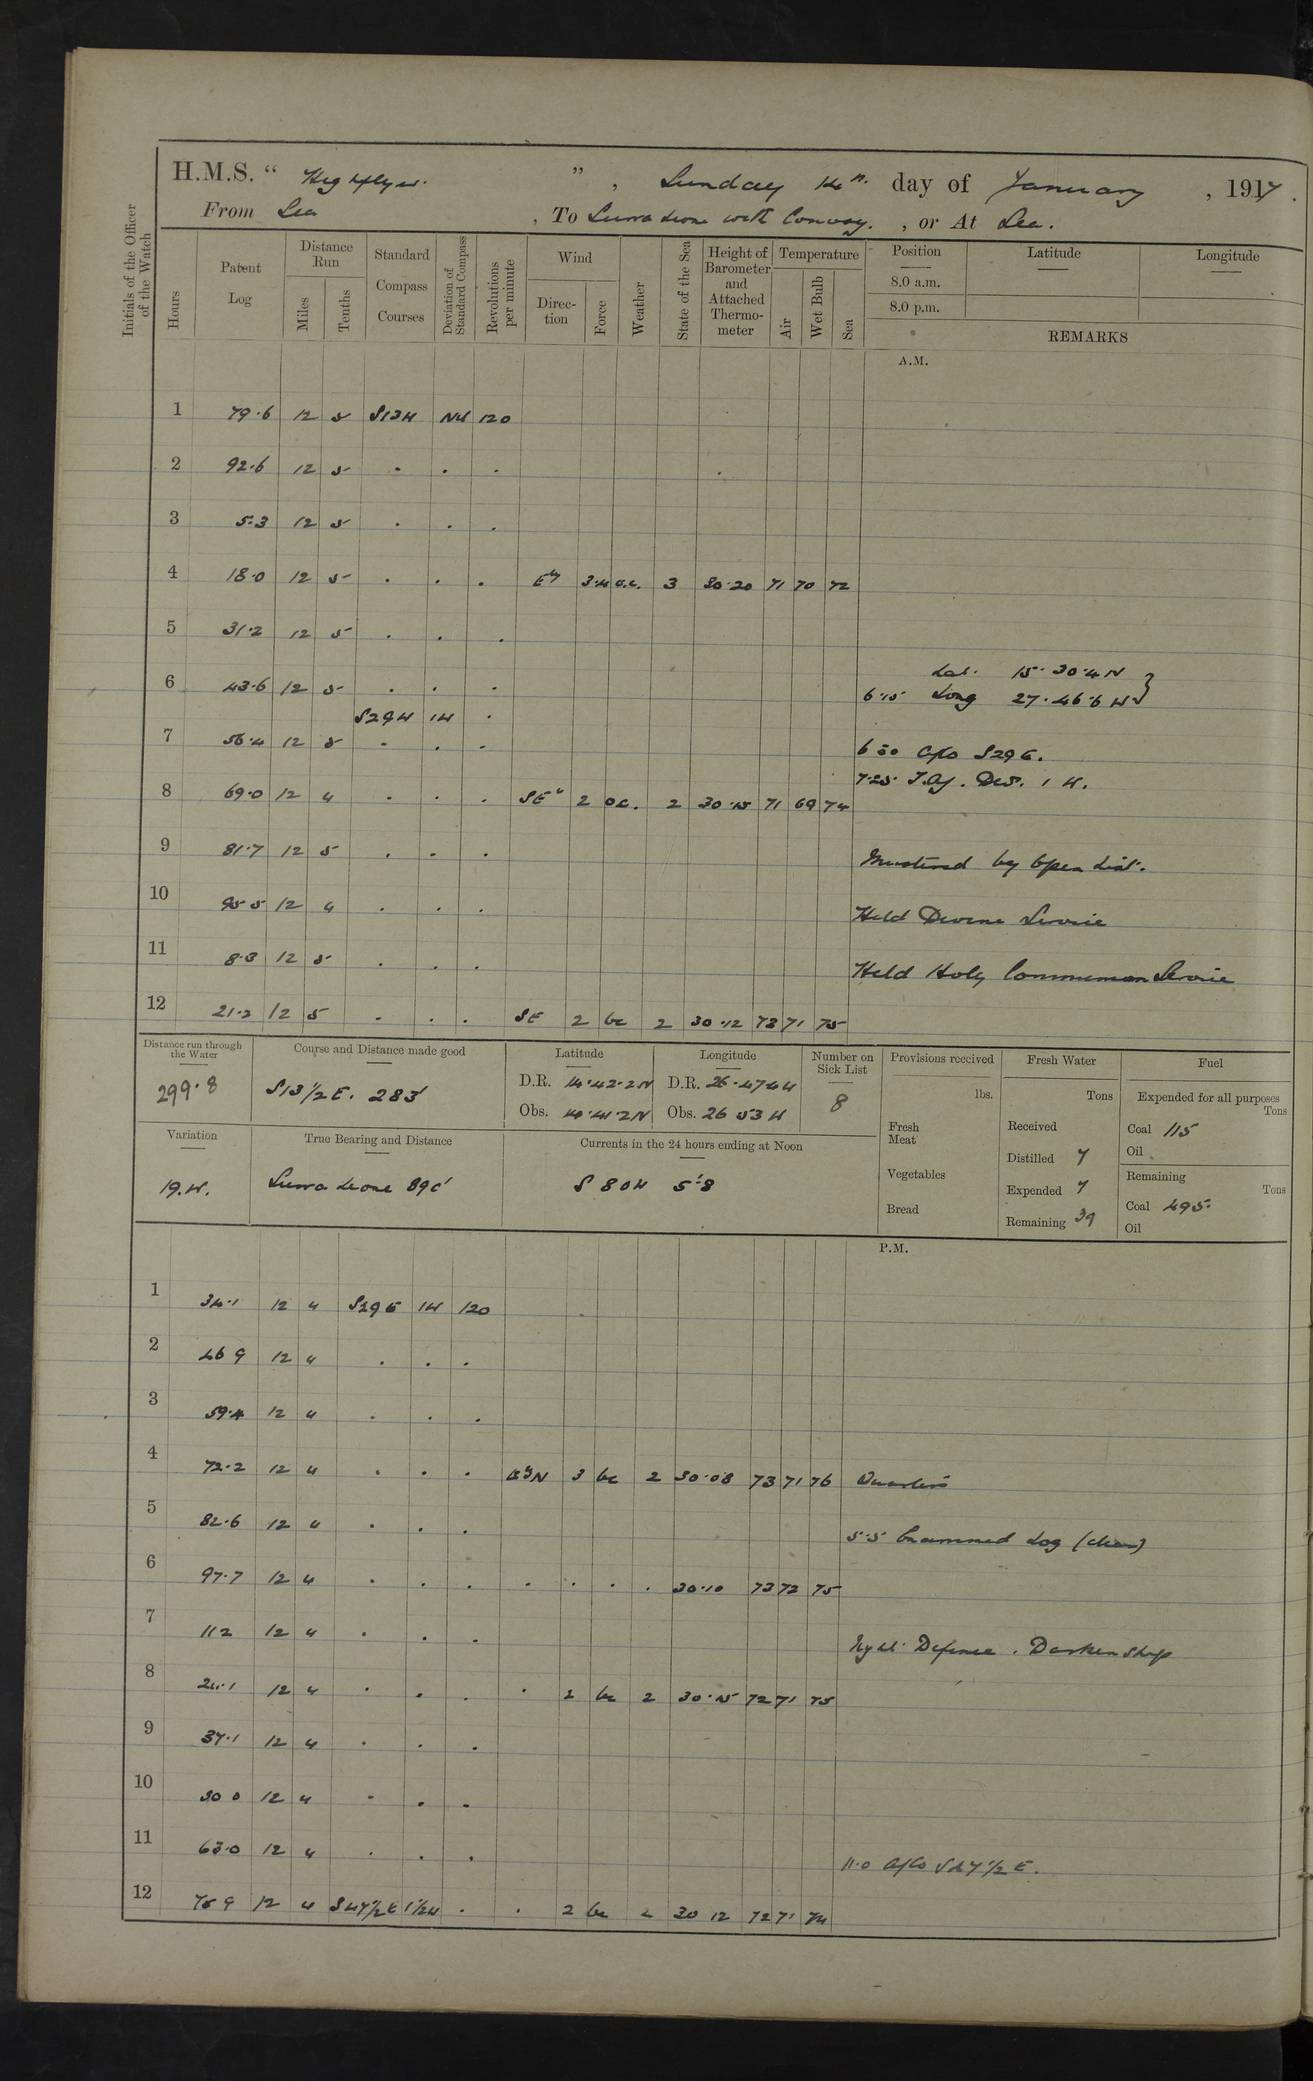 H.M.S. “ Highflyer. ” , Sunday 14th. day of January , 1917.
From Sea , To Sierra Leone with Convoy. , or At Sea.
Initials of the Officer of the Watch
Hours
Patent Log
Distance Run
Miles
Tenths
Standard Compass Courses
Deviation of Standard Compass
Revolutions per minute
Wind
Direction
Force
Weather
State of the Sea
Height of Barometer and Attached Thermometer
Temperature
Air
Wet Bulb
Sea
Position Latitude Longitude
8.0 a.m.
8.0 p.m.
REMARKS
A.M.
1 79.6 12 5 S13W Nil 120
2 92.6 12 5 . . .
3 5.3 12 5 . . .
4 18.0 12 5 . . . Ely 3.4 o.c. 3 30.20 71 70 72
5 31.2 12 5 . . .
Lat. 15. 30.4 N
6 43.6 12 5 . . . 6.15 Long 27.46.6 W
S29W 1W .
7 56.4 12 5 . . . 6 30 A/Co S29E.
7.25 T.Az. Dev. 1 W.
8 69.0 12 4 . . . SEly 2 oc. 2 30.15 71 69 74
9 81.7 12 5 . . . Mustered by Open List.
10 95 5 12 4 . . . Held Devine Service
11 8.3 12 5 . . . Held Holy Communion Service
12 21.2 12 5 . . . SE 2 bc 2 30.12 73 71 75
Distance run through the Water
299.8
Course and Distance made good
S13 1/2 E. 283'
Latitude
D.R. 14.42.2N
Obs. 14.41.2N
Longitude
D.R. 26.47.4W
Obs. 26 53 W
Number on Sick List
8
Variation
19.W.
True Bearing and Distance
Sierra Leone 890'
Currents in the 24 hours ending at Noon
S 80W 5.8
Provisions received
lbs.
Fresh Meat
Vegetables
Bread
Fresh Water
Tons
Received
Distilled 7
Expended 7
Remaining 39
Fuel
Expended for all purposes
Tons
Coal 115
Oil
Remaining
Tons
Coal 495.
Oil
P.M.
1 34.1 12 4 S29E 1W 120
2 46 9 12 4 . . .
3 59.4 12 4 . . .
4 72.2 12 4 . . . EyN 3 bc 2 30.08 73 71 76 Quarters
5 82.6 12 4 . . . 5.5 Examined Log (clear)
6 97.7 12 4 . . . . . . . 30.10 73 72 75
7 11 2 12 4 . . . Night Defence. Darken Ship
8 24.1 12 4 . . . . 2 bc 2 30.15 72 71 75
9 37.1 12 4 . . .
10 50 0 12 4 . . .
11 63.0 12 4 . . . 11.0 A/Co S47 1/2 E.
12 75 9 12 4 S47 1/2 E 1 1/2W . . 2 bc 2 30 12 72 71 74